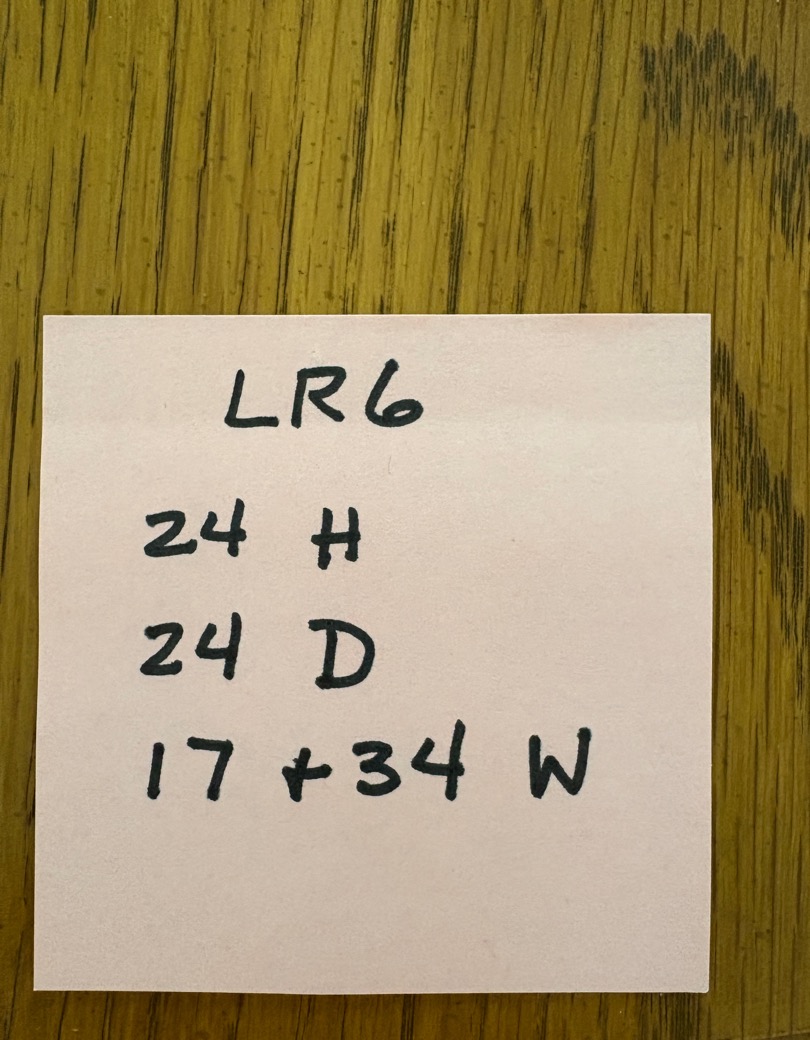 LR6
24 H
24 D
17 + 34 W